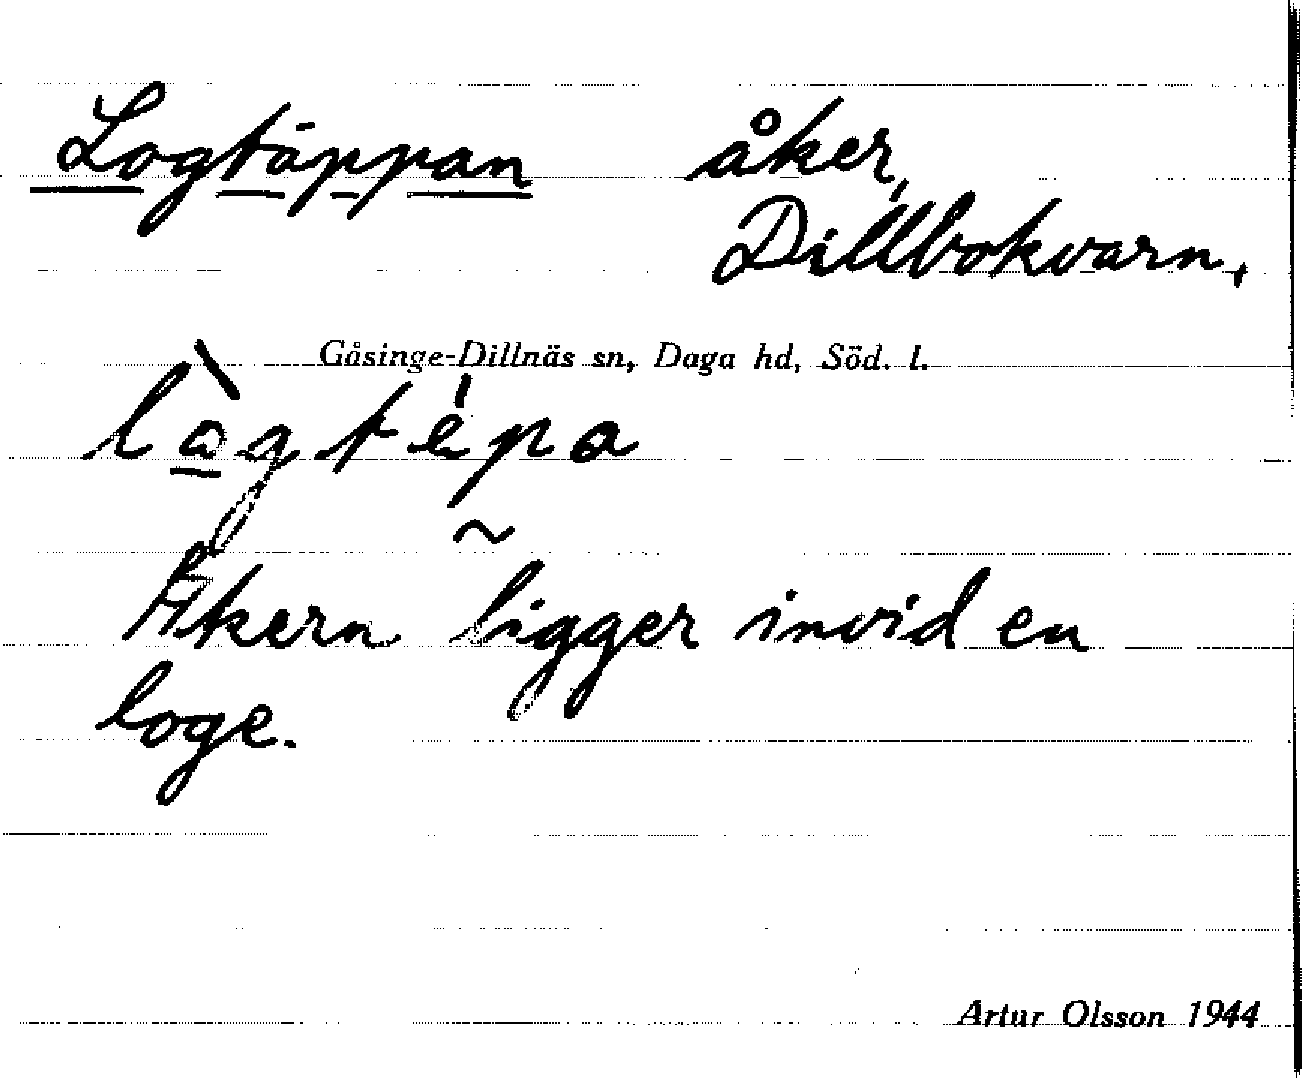 Logtäppan åker,
Dillbokvarn,
Gåsinge-Dillnäs sn, Daga hd, Söd. l.
Åkern ligger invid en
loge.
Artur Olsson 1944